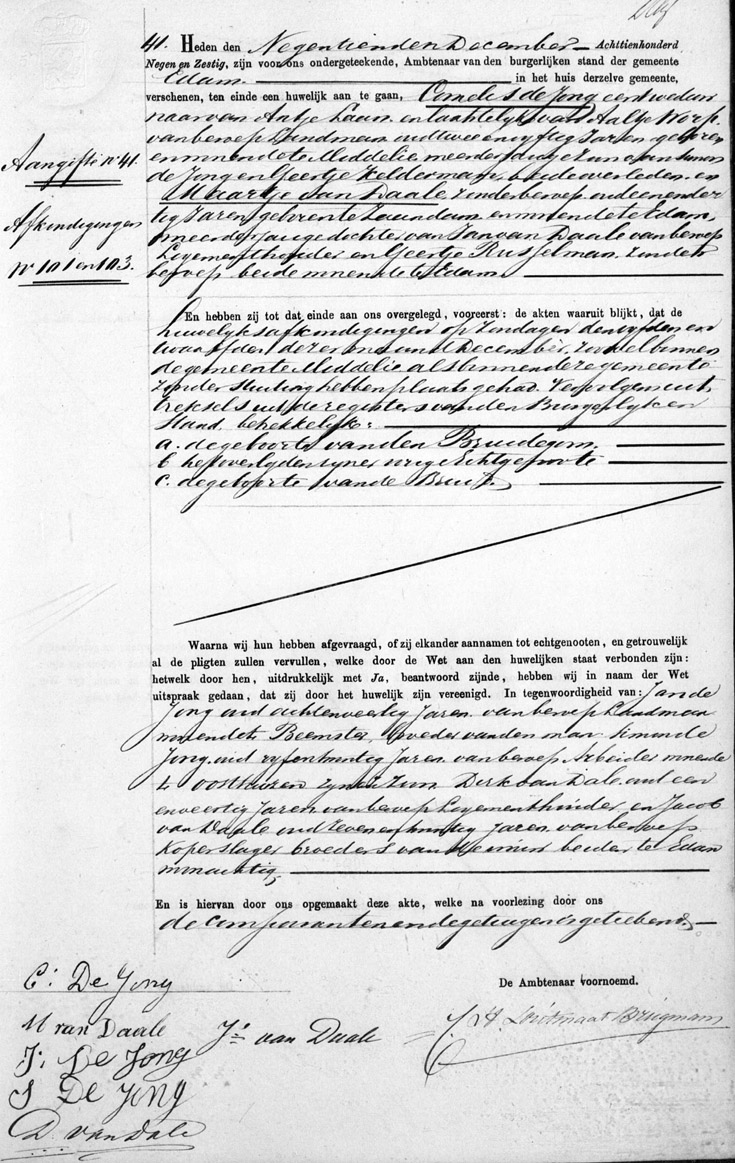 41. Heden den Negentienden December – Achttienhonderd
Negen en Zestig, zijn voor ons ondergeteekende, Ambtenaar van den burgerlijken stand der gemeente
Edam. in het huis derzelve gemeente,
verschenen, ten einde een huwelijk aan te gaan, Cornelis de Jong eerst weduw
naar van Antje Laan, en laatstelijk van Aaltje
van beroep Landman oud twee en vyftig Jaren, geboren
en wonende te Middelie, meerderjarige zoon van Simon
Aangifte No 41.
de Jong en Geertje Keldermaje, beide overleden. en
Maartje van Daale, zonder beroep, oud een en der
tig Jaren, geboren te Zaandam en wonende te Edam,
Afkondigingen
meerderjarige dochter van Jan van Daale van beroep
No 101 en 103.
Logementhouder en Geertje Russelman, zonder
beroep beide wonende te Edam.
En hebben zij tot dat einde aan ons overgelegd, vooreerst: de akten waaruit blijkt, dat de
huwelyksafkondigingen op Zondagen den vyfden en
twaalfden dezer maand December, zoo wel binnen
de gemeente Middelie als binnen deze gemeente
zonder stuiting hebben plaats gehad. Ten volgen uit,
treksels uit de registers van den Burgerlyken
Stand, betrekkelyk:
a. de geboorte van den Bruidegom.
b het overlyden zyner vorige Echtgenoote
c. de geboorte van de Bruid.
Waarna wij hun hebben afgevraagd, of zij elkander aannamen tot echtgenooten, en getrouwelijk
al de pligten zullen vervullen, welke door de Wet aan den huwelijken staat verbonden zijn:
hetwelk door hen, uitdrukkelijk met Ja, beantwoord zijnde, hebben wij in naam der Wet
uitspraak gedaan, dat zij door het huwelijk zijn vereenigd. In tegenwoordigheid van: Jan de
Jong oud achtenveertig Jaren van beroep Landman
wonende te Beemster, broeder van den man Simon de
Jong, oud vyfentwintig Jaren van beroep Arbeider wonende
te Oosthuizen zynen Zoon Dirk van Dale, oud een
en veertig Jaren van beroep Logementhouder, en Jacob
van Daale oud zeven en twintig Jaren, van beroep
Koperslager broeders van de vrouw beiden te Edam
woonachtig
En is hiervan door ons opgemaakt deze akte, welke na voorlezing door ons
de comparanten en de getuigen is geteekend.
De Ambtenaar voornoemd.
C: De Jong
M van Daale
J: van Daale
Brugman
J: De Jong
S De Jong
D. van Dale